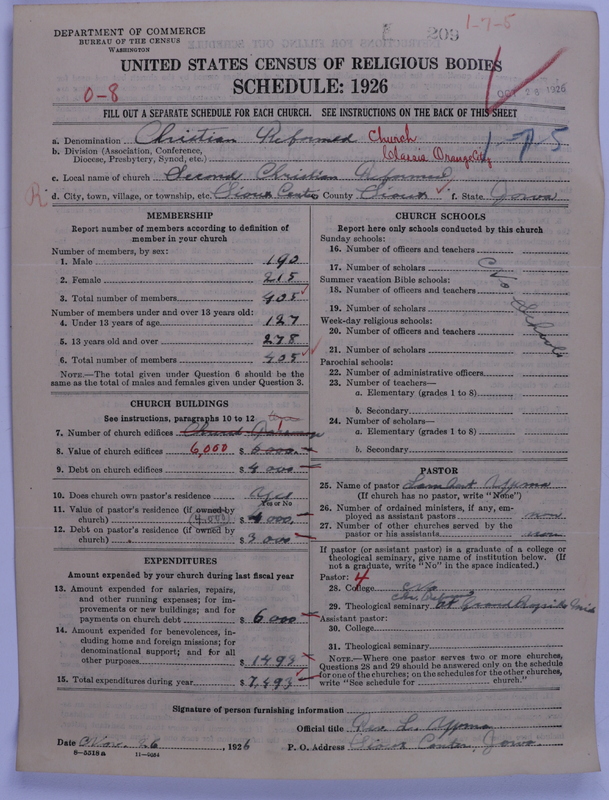 DEPARTMENT OF COMMERCE
BUREAU OF THE CENSUS
WASHINGTON
209
1-7-5
UNITED STATES CENSUS OF RELIGIOUS BODIES
SCHEDULE: 1926
0-8
OCT 26 1926
FILL OUT A SEPARATE SCHEDULE FOR EACH CHURCH. SEE INSTRUCTIONS ON THE BACK OF THIS SHEET
a. Denomination Christian Reformed Church
1-7-5
b. Division (Association, Conference, Diocese, Presbytery, Synod, etc.) Classis Orange City
c. Local name of church Second Christian Reformed
R d. City, town, village, or township, etc. Sioux Center County Sioux f. State Iowa
MEMBERSHIP
Report number of members according to definition of member in your church
Number of members, by sex:
1. Male 190
2. Female 215
3. Total number of members 405
Number of members under and over 13 years old:
4. Under 13 years of age 127
5. 13 years old and over 278
6. Total number of members 405
NOTE.—The total given under Question 6 should be the same as the total of males and females given under Question 3.
CHURCH BUILDINGS
See instructions, paragraphs 10 to 12
7. Number of church edifices
8. Value of church edifices 6,000 $ 6000.
9. Debt on church edifices $ 4000
10. Does church own pastor's residence Yes
Yes or No
11. Value of pastor's residence (if owned by church) (4,000) $ 4000.
12. Debt on pastor's residence (if owned by church) $ 3000
EXPENDITURES
Amount expended by your church during last fiscal year
13. Amount expended for salaries, repairs, and other running expenses; for improvements or new buildings; and for payments on church debt $ 6000
14. Amount expended for benevolences, including home and foreign missions; for denominational support; and for all other purposes $ 1493
15. Total expenditures during year $ 7,493
CHURCH SCHOOLS
Report here only schools conducted by this church
Sunday schools:
16. Number of officers and teachers
17. Number of scholars
Summer vacation Bible schools:
18. Number of officers and teachers
19. Number of scholars
No Schools
Week-day religious schools:
20. Number of officers and teachers
21. Number of scholars
Parochial schools:
22. Number of administrative officers
23. Number of teachers—
a. Elementary (grades 1 to 8)
b. Secondary
24. Number of scholars—
a. Elementary (grades 1 to 8)
b. Secondary
PASTOR
25. Name of pastor Lambert Ypma
(If church has no pastor, write "None")
26. Number of ordained ministers, if any, employed as assistant pastors none
27. Number of other churches served by the pastor or his assistants none
If pastor (or assistant pastor) is a graduate of a college or theological seminary, give name of institution below. (If not a graduate, write "No" in the space indicated.)
Pastor: 4
28. College No
29. Theological seminary at Grand Rapids Mich
Assistant pastor:
30. College
31. Theological seminary
NOTE.—Where one pastor serves two or more churches, Questions 28 and 29 should be answered only on the schedule for one of the churches; on the schedules for the other churches, write "See schedule for church."
Signature of person furnishing information
Official title Rev. L. Ypma
Date Nov. 26, 1926 P. O. Address Sioux Center, Iowa.
8-5518a 11-5064